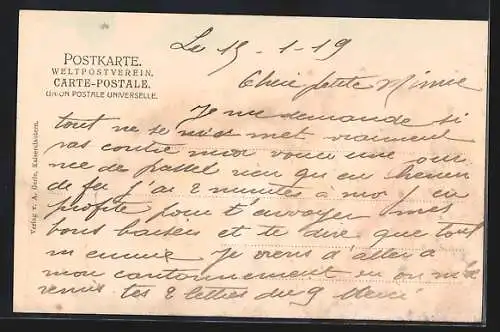 POSTKARTE.
WELTPOSTVEREIN.
CARTE-POSTALE.
UNION POSTALE UNIVERSELLE.
Le 15-1-19
Chère petite Mimie
Je me demande si
tout ne se met vraiment
pas contre moi voici une
de passé rien qu'en chemin
de fer j'ai 2 minutes à moi j'en
profite pour t'envoyer mes
bons baisers et te dire que tout
m'ennuie Je viens d'aller à
mon cantonnement en on m'a
remis tes 2 lettres du 9 Merci
Verlag v. A. Kaiserslautern.